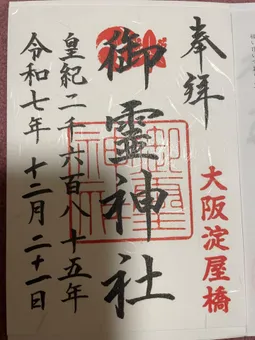 奉拝
大阪淀屋橋
御霊神社
皇紀二千六百八十五年
令和七年 十二月 二十一日